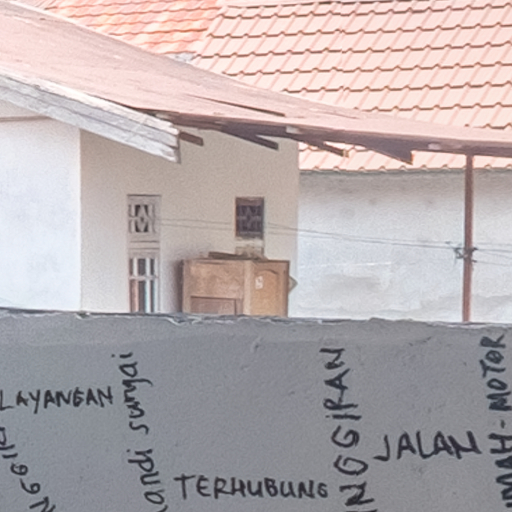 LAYANGAN
andi sungai
TERHUBUNG
NGGIRAN
JALAN
MAH-MOTOR